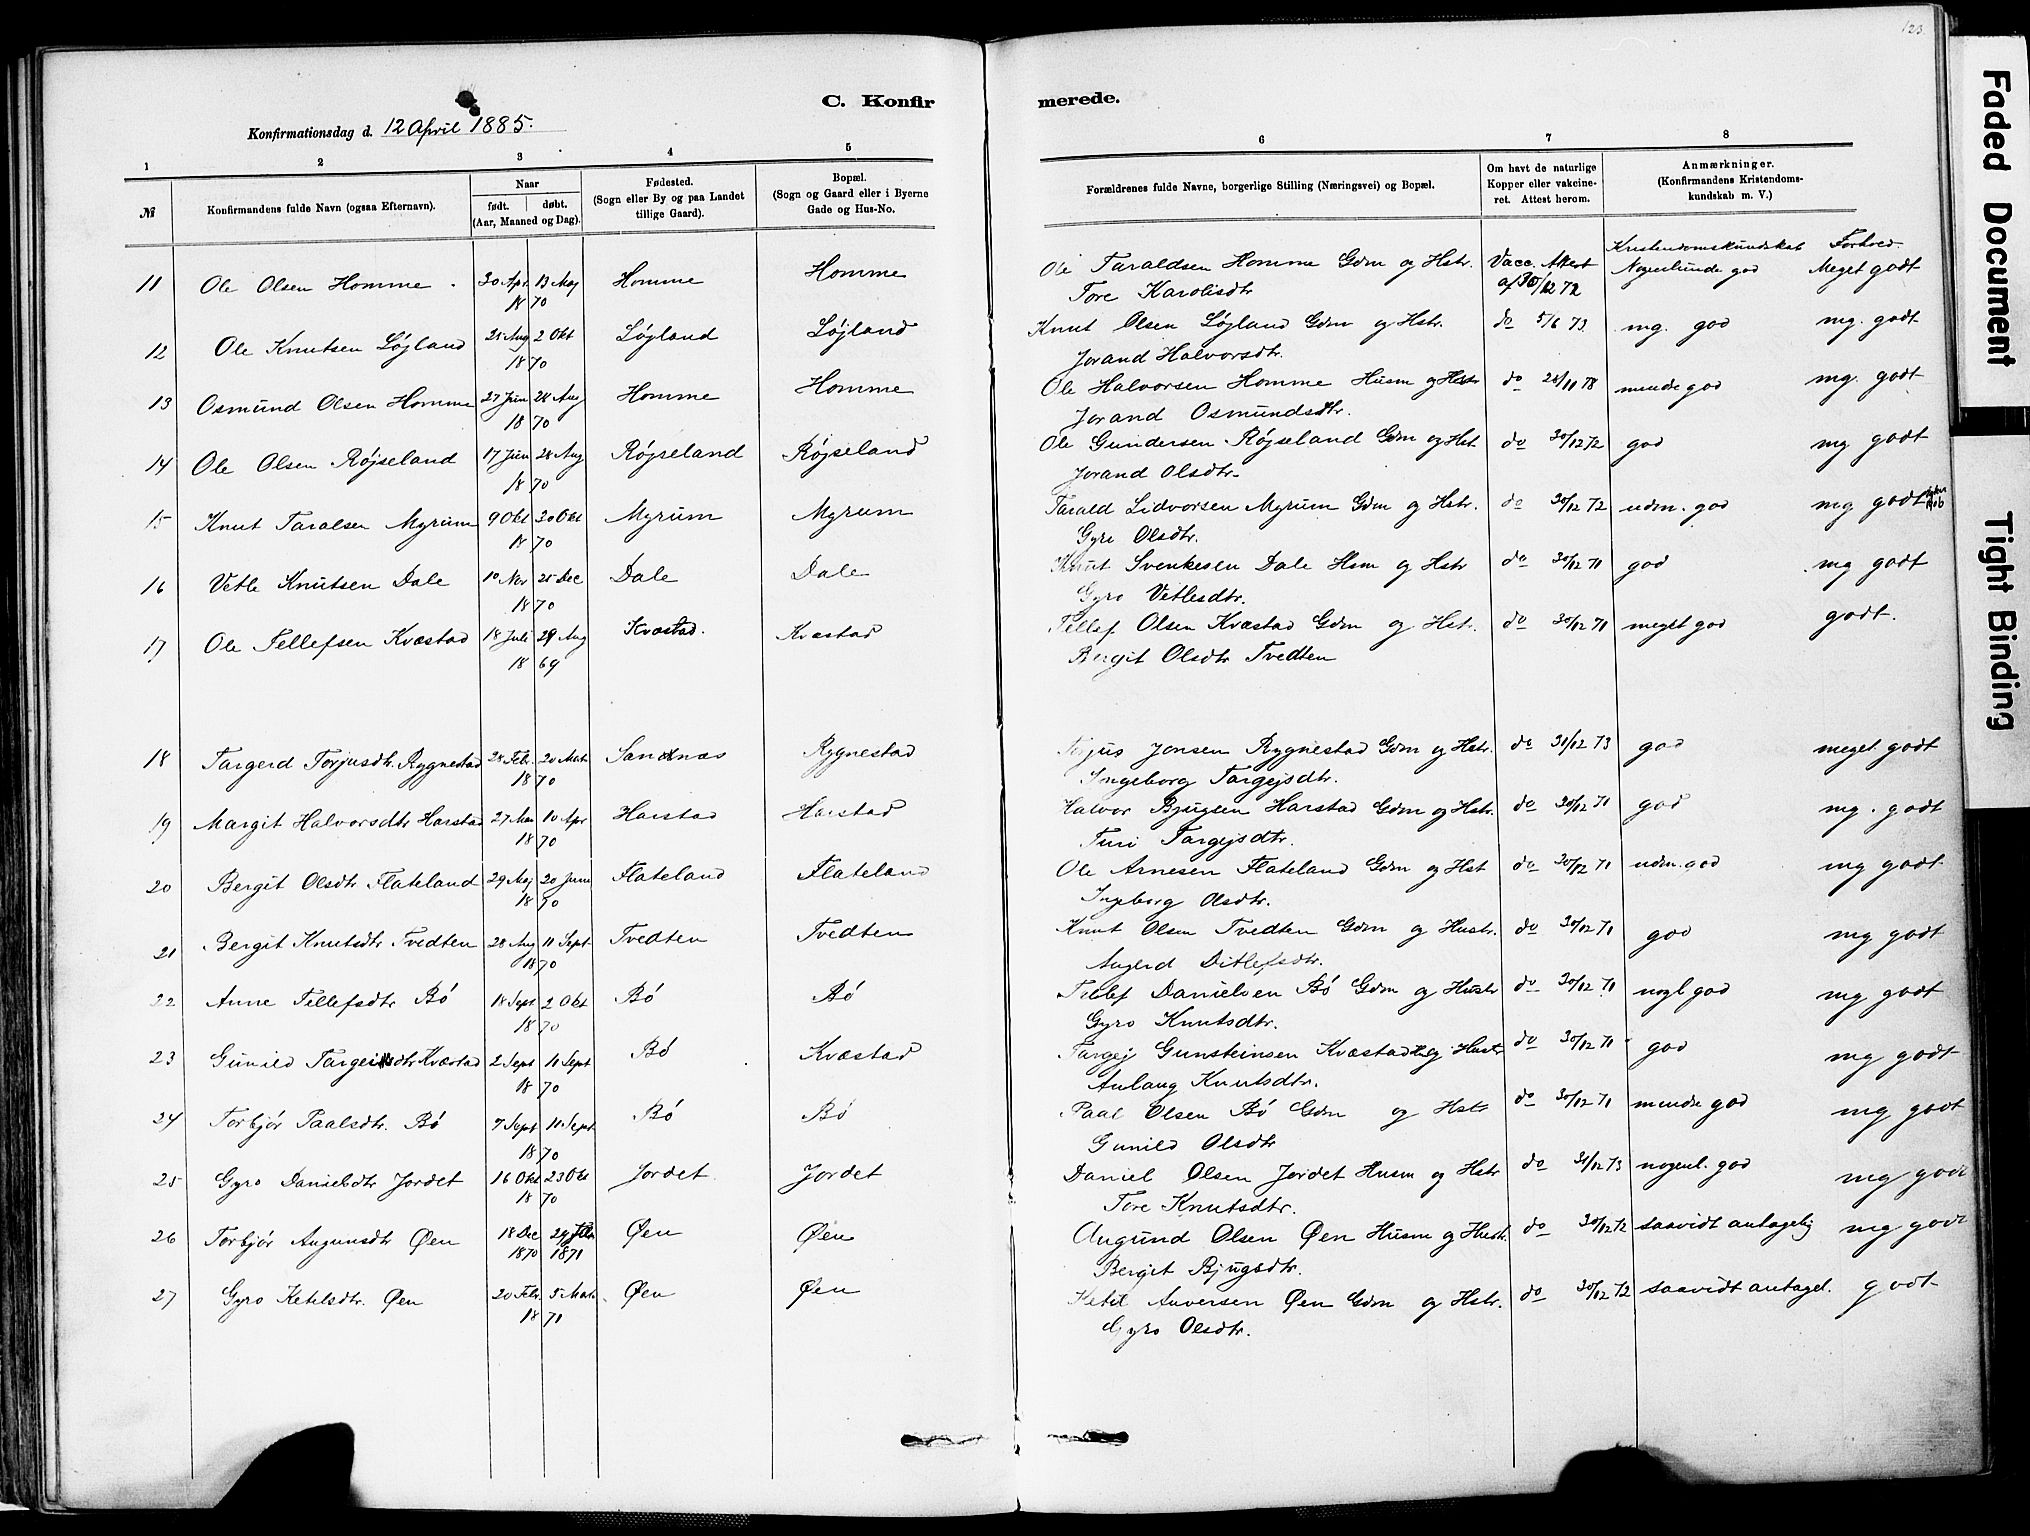 123
C. Konfirmerede.
Konfirmationsdag d. 12 April 1885.
1 2 3 4 5 6 7 8
№ Konfirmandens fulde Navn (ogsaa Efternavn). Naar født. døbt. (Aar, Maaned og Dag). Fødested. (Sogn eller By og paa Landet tillige Gaard). Bopæl. (Sogn og Gaard eller i Byerne Gade og Hus-No. Forældrenes fulde Navne, borgerlige Stilling (Næringsvei) og Bopæl. Om havt de naturlige Kopper eller vakcineret. Attest herom. Anmærkninger. (Konfirmandens Kristendomskundskab m. V.)
Kristendomskundskab Forhold
11 Ole Olsen Homme 30 Apr 13 Maj 1870 Homme Homme Ole Taraldsen Homme Gdm og Hstr. Vacc. Attest af 30/12 72 Nogenlunde god Meget godt
Tore Karolisdtr
12 Ole Knutsen Løjland 25 Aug 2 Okt 1870 Løjland Løjland Knut Olsen Løjland Gdm og Hstr. do 5/6 73 mg. god mg. godt
Jorand Halvorsdtr.
13 Osmund Olsen Homme 27 Jun 28 Aug 1870 Homme Homme Ole Halvorsen Homme Husm og Hstr do 28/11 78 mindre god mg. godt
Jorand Osmundsdtr.
14 Ole Olsen Røjseland 17 Jun 28 Aug 1870 Røjseland Røjseland Ole Gundersen Røjseland Gdm og Hst do 30/12 72 god mg godt
Jorand Olsdtr
15 Knut Taralsen Myrum 9 Okt 30 Okt 1870 Myrum Myrum Tarald Lidvorsen Myrum Gdm og Hstr. do 30/12 72 udm. god mg godt
Gyro Olsdtr.
16 Vetle Knutsen Dale 10 Nov 25 Dec 1870 Dale Dale Knut Svenkesen Dale Hsm og Hstr do 30/12 71 god mg godt
Gyro Vetlesdtr.
17 Ole Tellefsen Kvæstad 18 Juli 29 Aug 1869 Kvæstad. Kvæstad Tellef Olsen Kvæstad Gdm og Hstr. do 30/12 71 meget god godt.
Bergit Olsdtr Tvedten
18 Targerd Torjusdtr. Rygnestad 28 Febr. 20 Mats 1870 Sandnæs Rygnestad Torjus Jonsen Rygnestad Gdm og Hstr. do 31/12 73 god meget godt
Ingeborg Targejsdtr.
19 Margit Halvorsdtr Harstad 27 Mar 10 Apr 1870 Harstad Harstad Halvor Bjugsen Harstad Gdm og Hstr. do 30/12 71 god mg. godt
Turi Targejsdtr.
20 Bergit Olsdtr Flateland 29 Maj 20 Juni 1870 Flateland Flateland Ole Arnesen Flateland Gdm og Hst do 30/12 71 udm. god mg godt
Ingeborg Olsdtr.
21 Bergit Knutsdtr Tvedten 28 Aug 11 Sept 1870 Tvedten Tvedten Knut Olsen Tvedten Gdm og Hustr. do 30/12 71 god mg godt
Angerd Ditlefsdtr.
22 Anne Tellefsdtr Bø 18 Sept 2 Okt 1870 Bø Bø Tellef Danielsen Bø Gdm og Hustr do 30/12 71 nogl god mg godt
Gyro Knutsdtr.
23 Gunild Targeisdtr Kvæstad 2 Sept 11 Sept 1870 Bø Kvæstad Targej Gunsteinsen Kvæstad og Hustr do 30/12 71 god mg godt
Aulaug Knutsdtr.
24 Torbjør Paalsdtr. Bø 7 Sept 18 Sept 1870 Bø Bø Paal Olsen Bø Gdm og Hstr do 30/12 71 mindre god mg godt
Gunild Olsdtr
25 Gyro Danielsdtr Jordet 16 Okt 23 Okt 1870 Jordet Jordet Daniel Olsen Jordet Husm og Hstr do 31/12 73 nogenl. god mg godt
Tore Knutsdtr.
26 Torbjør Augunsdtr Øen 18 Dec 1870 29 1871 Øen Øen Augund Olsen Øen Husm og Hustr. do 30/12 72 saavidt antagelig mg godt
Bergit Bjugsdtr.
27 Gyro Ketelsdtr. Øen 20 Febr. 5 Mats. 1870 Øen Øen Ketil Anversen Øen Gdm og Hstr. do 30/12 72 saavidt antagel. godt
Gyro Olsdtr.
Faded Document
Tight Binding